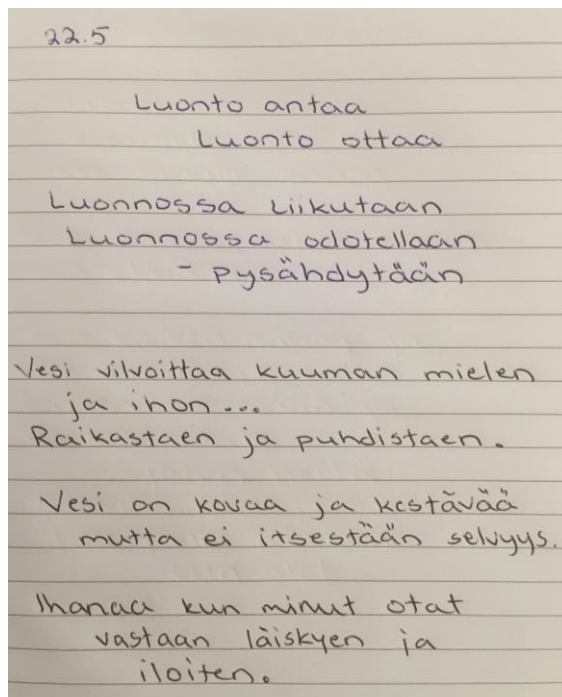 22.5
Luonto antaa
Luonto ottaa
Luonnossa liikutaan
Luonnossa odotellaan
- pysähdytään
Vesi vilvoittaa kuuman mielen
ja ihon...
Raikastaen ja puhdistaen.
Vesi on kovaa ja kestävää
mutta ei itsestään selvyys.
Ihanaa kun minut otat
vastaan läiskyen ja
iloiten.